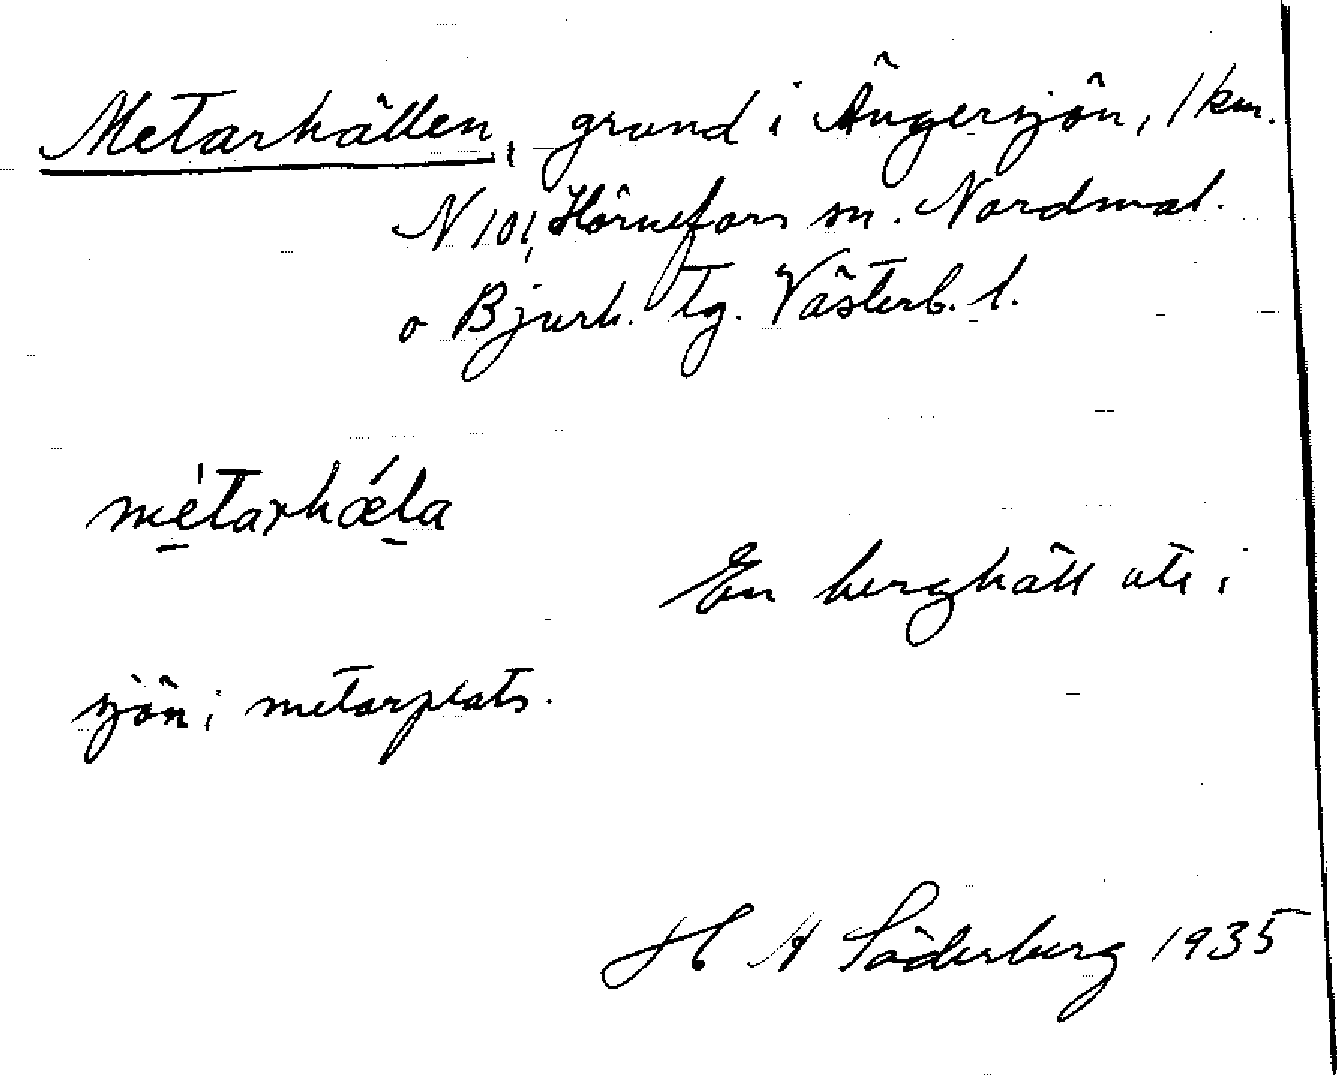 Metarhällen, grund i Ängersjön, 1 km.
N 101, Hörnefors sn. Nordmal.
o Bjurh. tg. Västerb. l.
métarhǽla
En berghäll ute i
sjön; metarplats.
H A Söderberg 1935